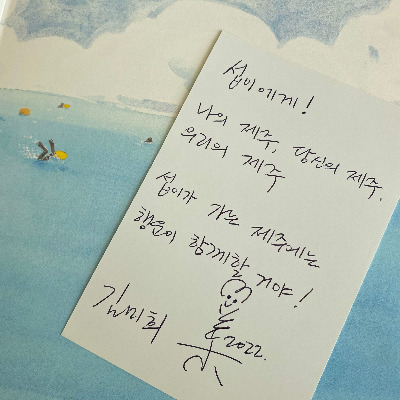 섭이에게!
나의 제주, 당신의 제주,
우리의 제주
섭이가 가는 제주에는
행운이 함께할 거야!
김미희
2022.